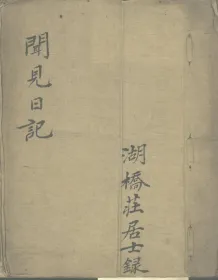 聞見日記
湖橋莊居士録